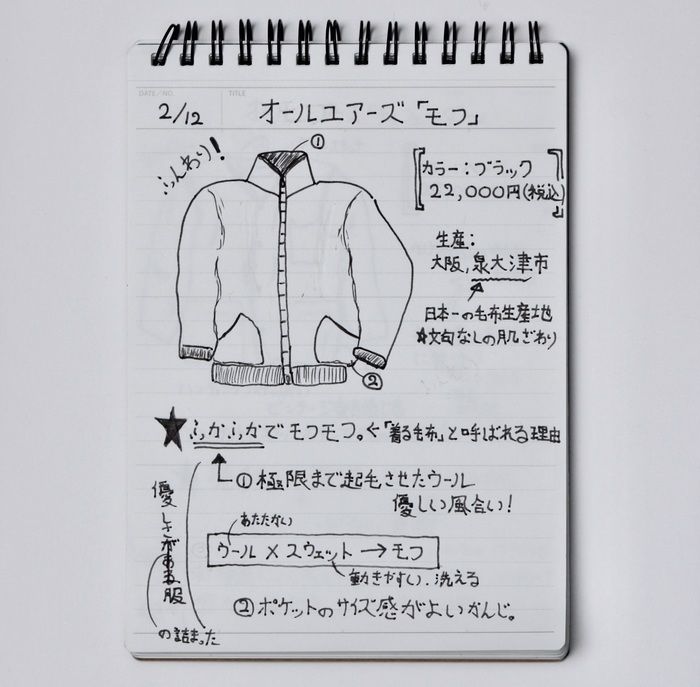 DATE/NO.
TITLE
2/12
オールユアーズ「モフ」
ふんわり！
①
カラー：ブラック
22,000円(税込)
生産：
大阪,泉大津市
日本一の毛布生産地
文句なしの肌ざわり
②
★ふかふかでモフモフ。←「着る毛布」と呼ばれる理由
①極限まで起毛させたウール
優しい風合い！
あたたかい
ウール×スウェット→モフ
動きやすい.洗える
②ポケットのサイズ感がよいかんじ。
優しさがある服
の詰まった